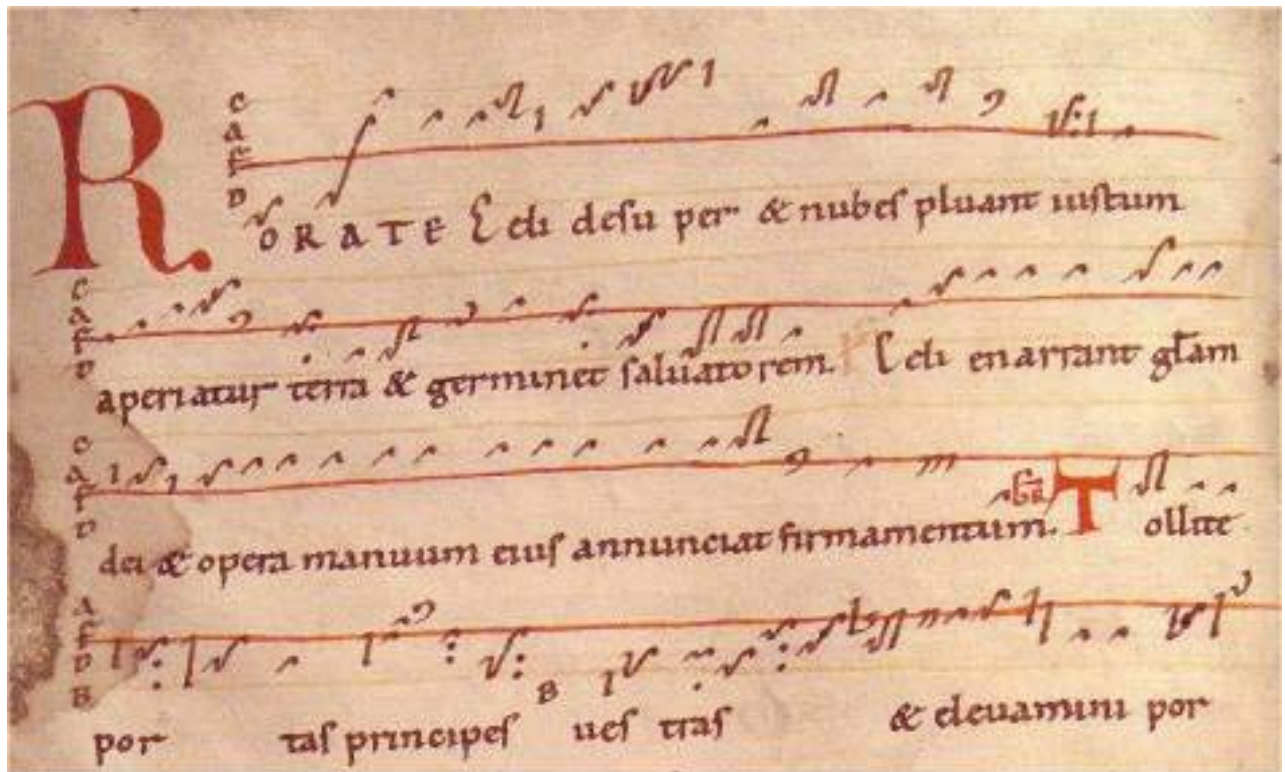 RORATE Celi desu per & nubes pluant iustum
aperiatur terra & germinet saluatorem. Celi enarrant gl̄am
dei & opera manuum eius annunciat firmamentum. GR̄ Tollite
por tas principes ues tras & eleuamini por